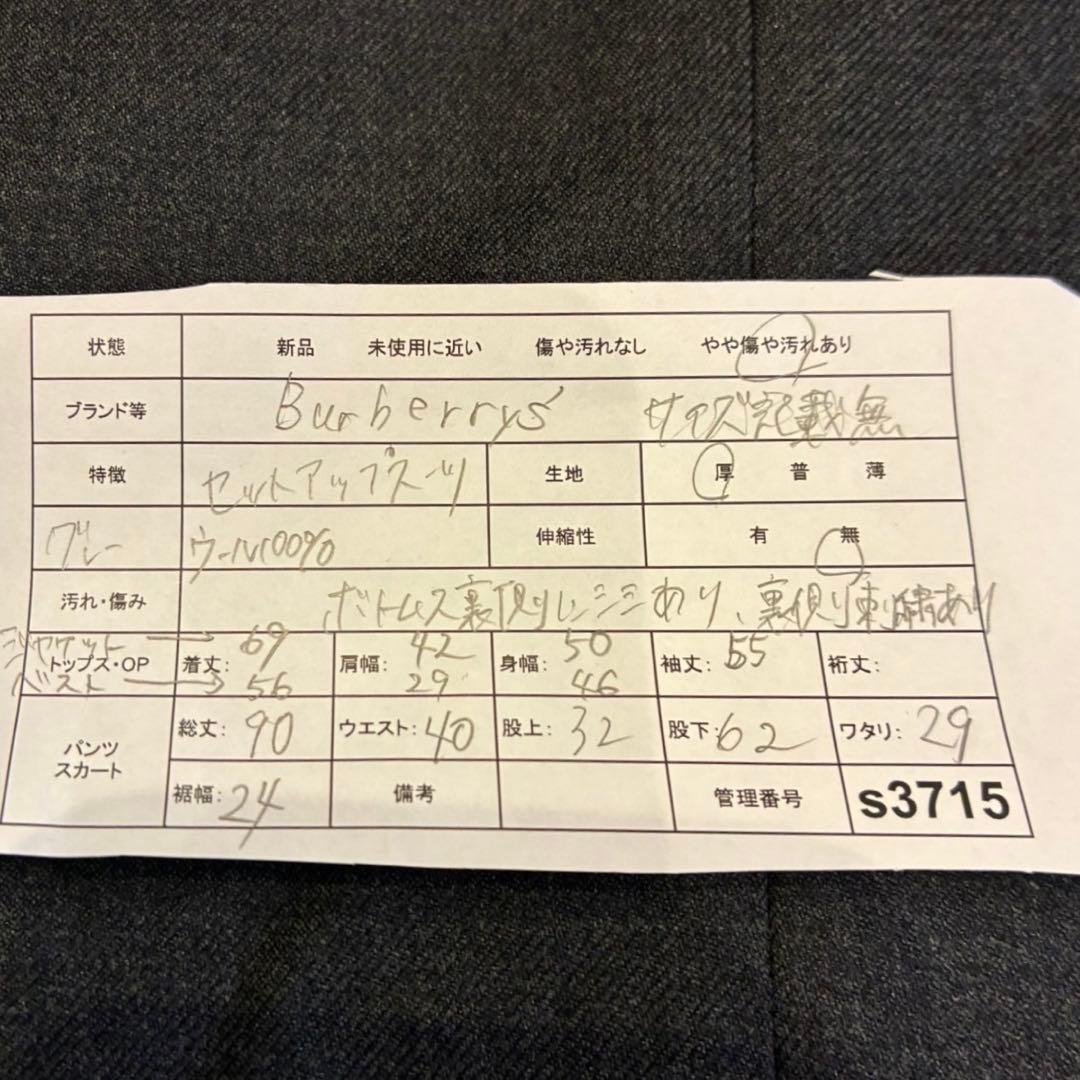 状態 新品 未使用に近い 傷や汚れなし やや傷や汚れあり
ブランド等 Burberrys サイズ記載無
特徴 セットアップスーツ 生地 厚 普 薄
グレー ウール100% 伸縮性 有 無
汚れ・傷み ボトムス裏側レンジミあり、裏側り刺繍あり
ジャケット → 69 42 50 55
トップス・OP 着丈: 肩幅: 身幅: 袖丈: 裄丈:
ベスト → 56 29 46
パンツ スカート 総丈: 90 ウエスト: 40 股上: 32 股下: 62 ワタリ: 29
裾幅: 24 備考 管理番号 s3715